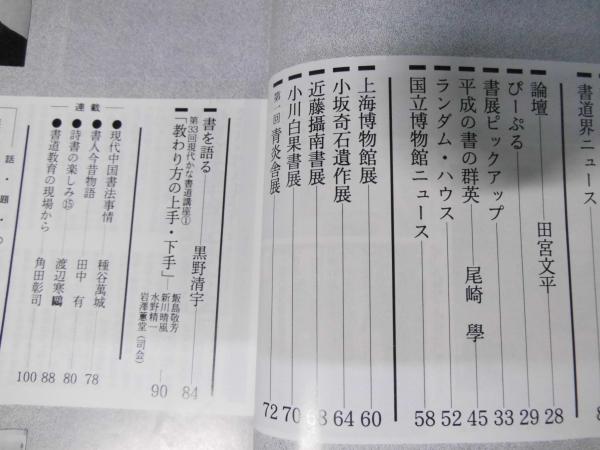 書道界ニュース
論壇 田宮文平 28
ぴーぷる 29
書展ピックアップ 33
平成の書の群英 尾崎學 45
ランダム・ハウス 52
国立博物館ニュース 58
上海博物館展 60
小坂奇石遺作展 64
近藤攝南書展 68
小川白果書展 70
第一回青炎舎展 72
書を語る 黒野清宇 84
第33回現代かな書道講座①
「教わり方の上手・下手」 90
飯島敬芳
新川晴風
水野精一
岩澤蕙堂(司会)
連載
●現代中国書法事情 種谷萬城 78
●書人今昔物語 田中有 80
●詩書の楽しみ⑮ 渡辺寒鷗 88
●書道教育の現場から 角田彰司 100
話・題・